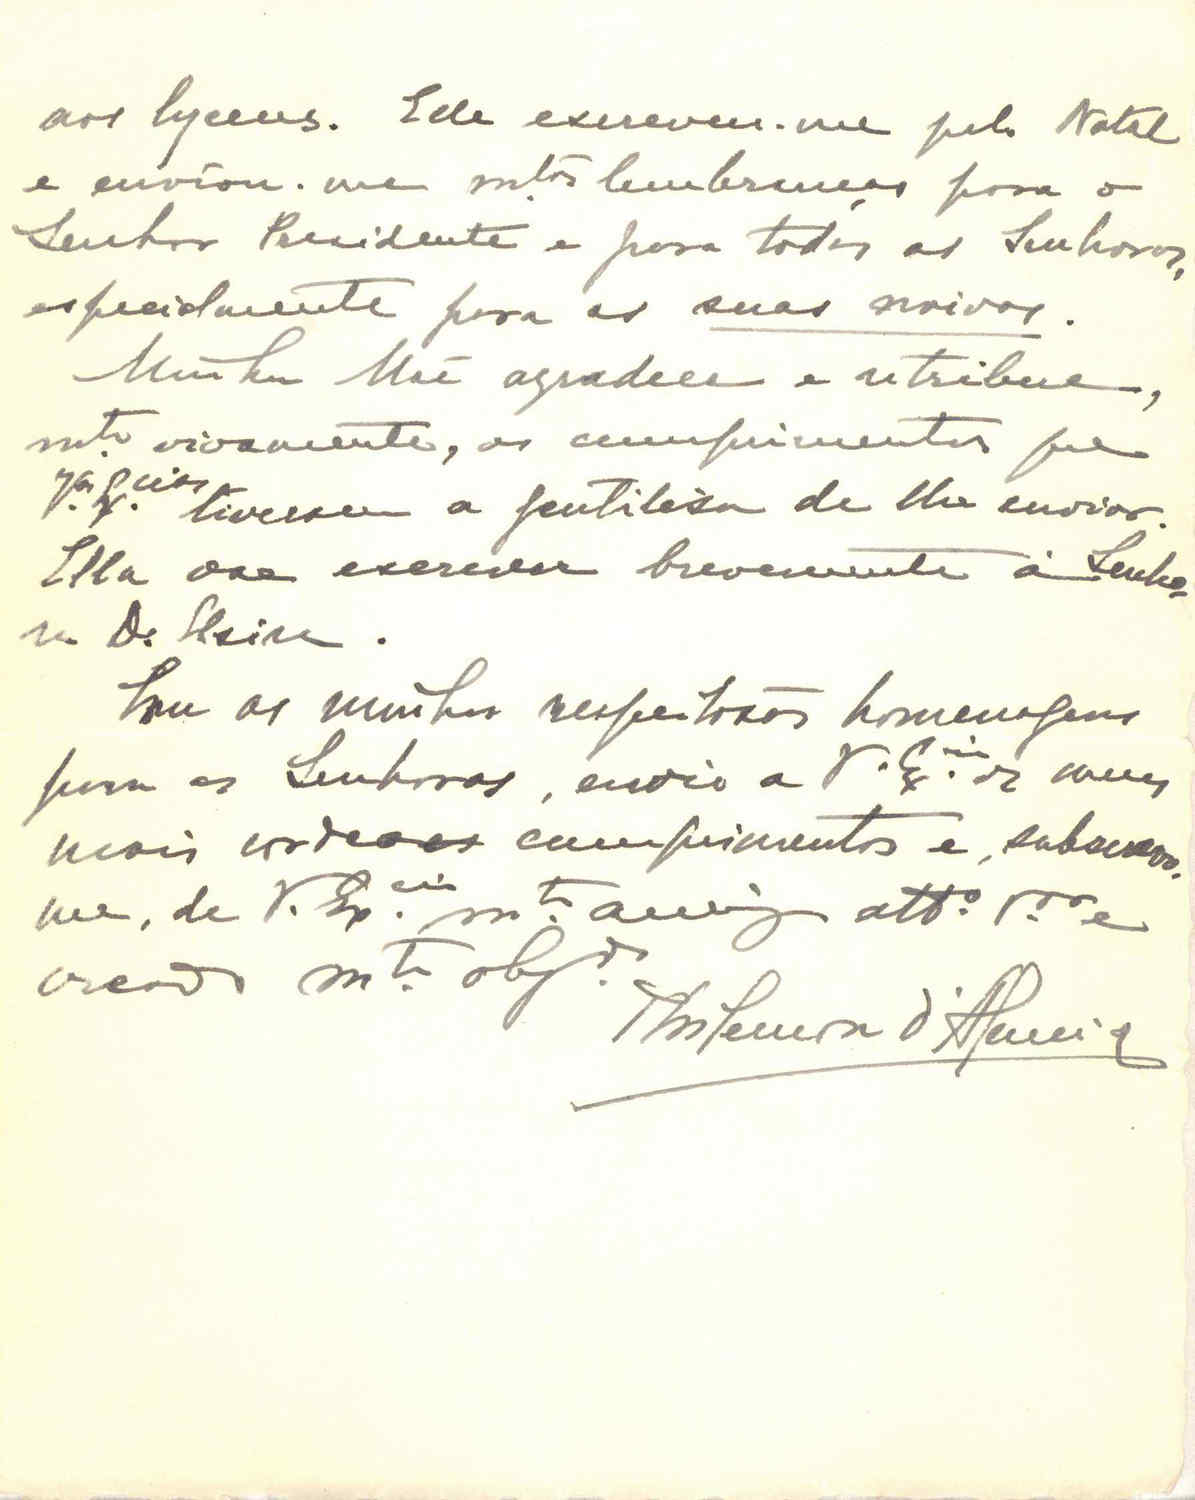 aos lyceus. Elle escreveu-me pelo Natal
e enviou-me m.tas lembranças para o
Senhor Presidente e para todas as Senhoras,
especialmente para as suas noivas.
Minha Mãe agradece e retribue,
m.to vivamente, os cumprimentos que
V.as Ex.cias tiveram a gentilesa de lhe enviar.
Ella vae escrever brevemente á Senho-
ra D. Elzira.
Com as minhas respeitosas homenagens
para as Senhoras, envio a V. Ex.cia os meus
mais cordeaes cumprimentos e, subscrevo-
me, de V. Ex.cia m.to amigo att.o v.or e
creado m.to obg.do
Philemon d'Almeida